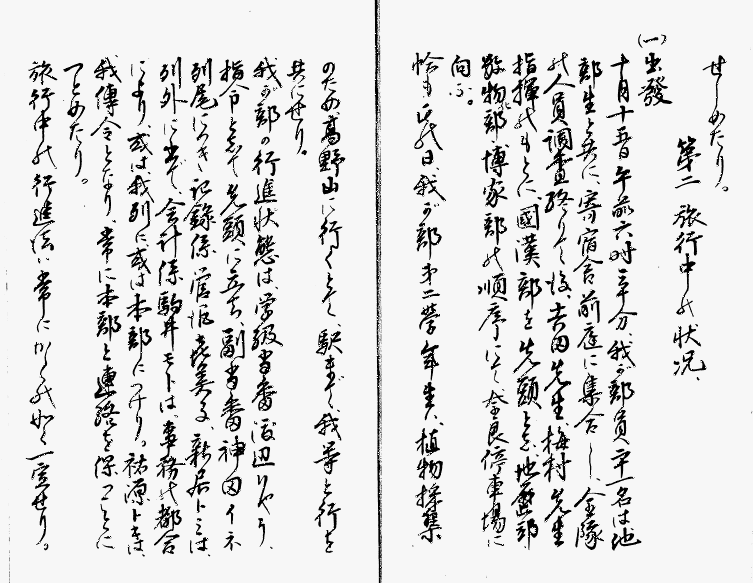 せしめたり。
第二 旅行中の状况、
(一)出發
十月十五日午前六時三十分、我が部員二十一名は他
部生と共に寄宿舎前庭に集合し、全隊
の人員調査終りて後、吉田先生、梅村先生
指揮のもとに國漢部を先頭とし、地歴部
数物部、博家部の順序にて奈良停車場に
向ふ。
恰も此の日、我が部第二学年生は、植物採集
のため高野山に行くとて、駅まで、我等と行を
共にせり。
我が部の行進状態は、学級当番渡辺りやう、
指令として先頭に立ち、副当番神田イネ
列尾につき記録係菅沼㐂美子、新居トミは、
列外に出で、会計係駒井モトは事務の都合
により、或は我列に或は本部につけり。祐源トキは、
我傳令となり、常に本部と連絡を保つことに
つとめたり。
旅行中の行進法は常にかくの如く一定せり。